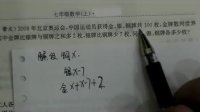 七年级数学(上)
2008年北京奥运会,中国运动员获得金、银、铜牌共100枚,金牌数列世界
中金牌比银牌与铜牌之和多2枚,银牌比铜牌少7枚,问金、银、铜牌各多少枚?
解设铜X.
银X-7
金X+X-7+2